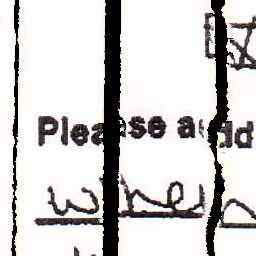 Please add
when